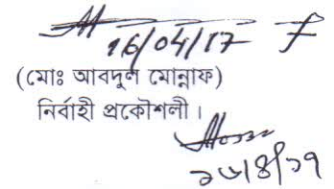 16/04/17
(মোঃ আবদুল মোন্নাফ)
নির্বাহী প্রকৌশলী।
১৬/৪/১৭